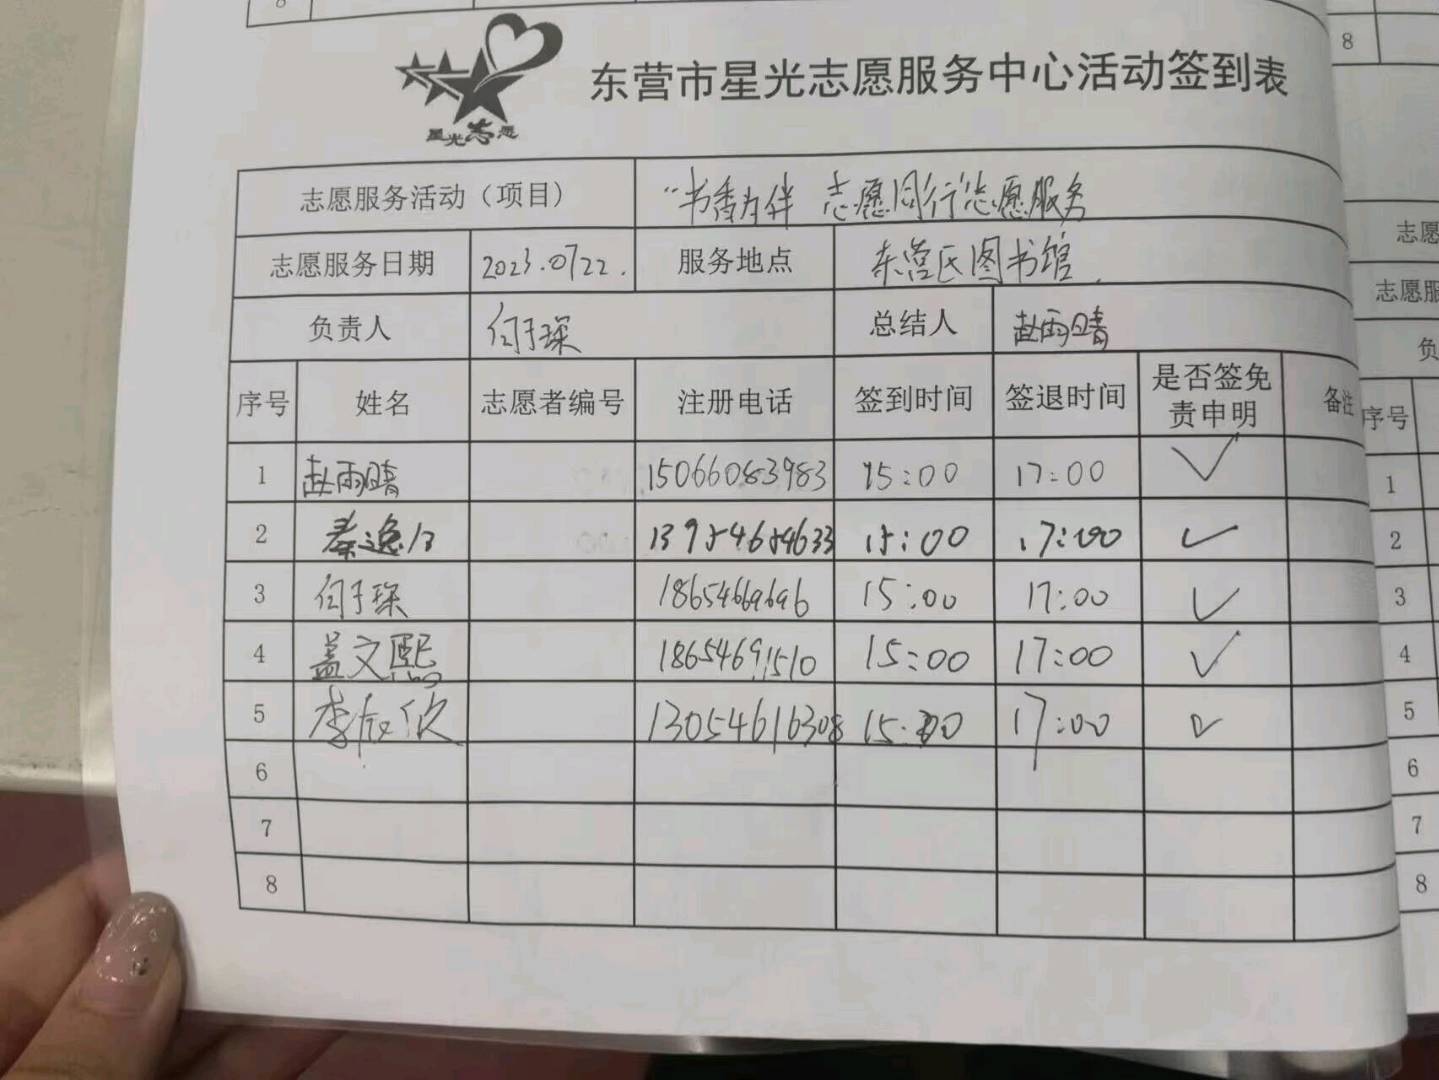 8
8
星光志愿
东营市星光志愿服务中心活动签到表
志愿服务活动（项目） “书香为伴 志愿同行”志愿服务
志愿服务日期 2023.0722. 服务地点 东营区图书馆.
负责人 总结人 赵雨晴
序号 姓名 志愿者编号 注册电话 签到时间 签退时间 是否签免责申明 备注
1 赵雨晴 15066083983 15:00 17:00 ✓
2 秦逸 13954654633 15:00 17:00 ✓
3 18654669696 15:00 17:00 ✓
4 盖文熙 18654691510 15:00 17:00 ✓
5 李 欣 13054616308 15:00 17:00 ✓
6
7
8
志愿
志愿服
负
序号
1
2
3
4
5
6
7
8